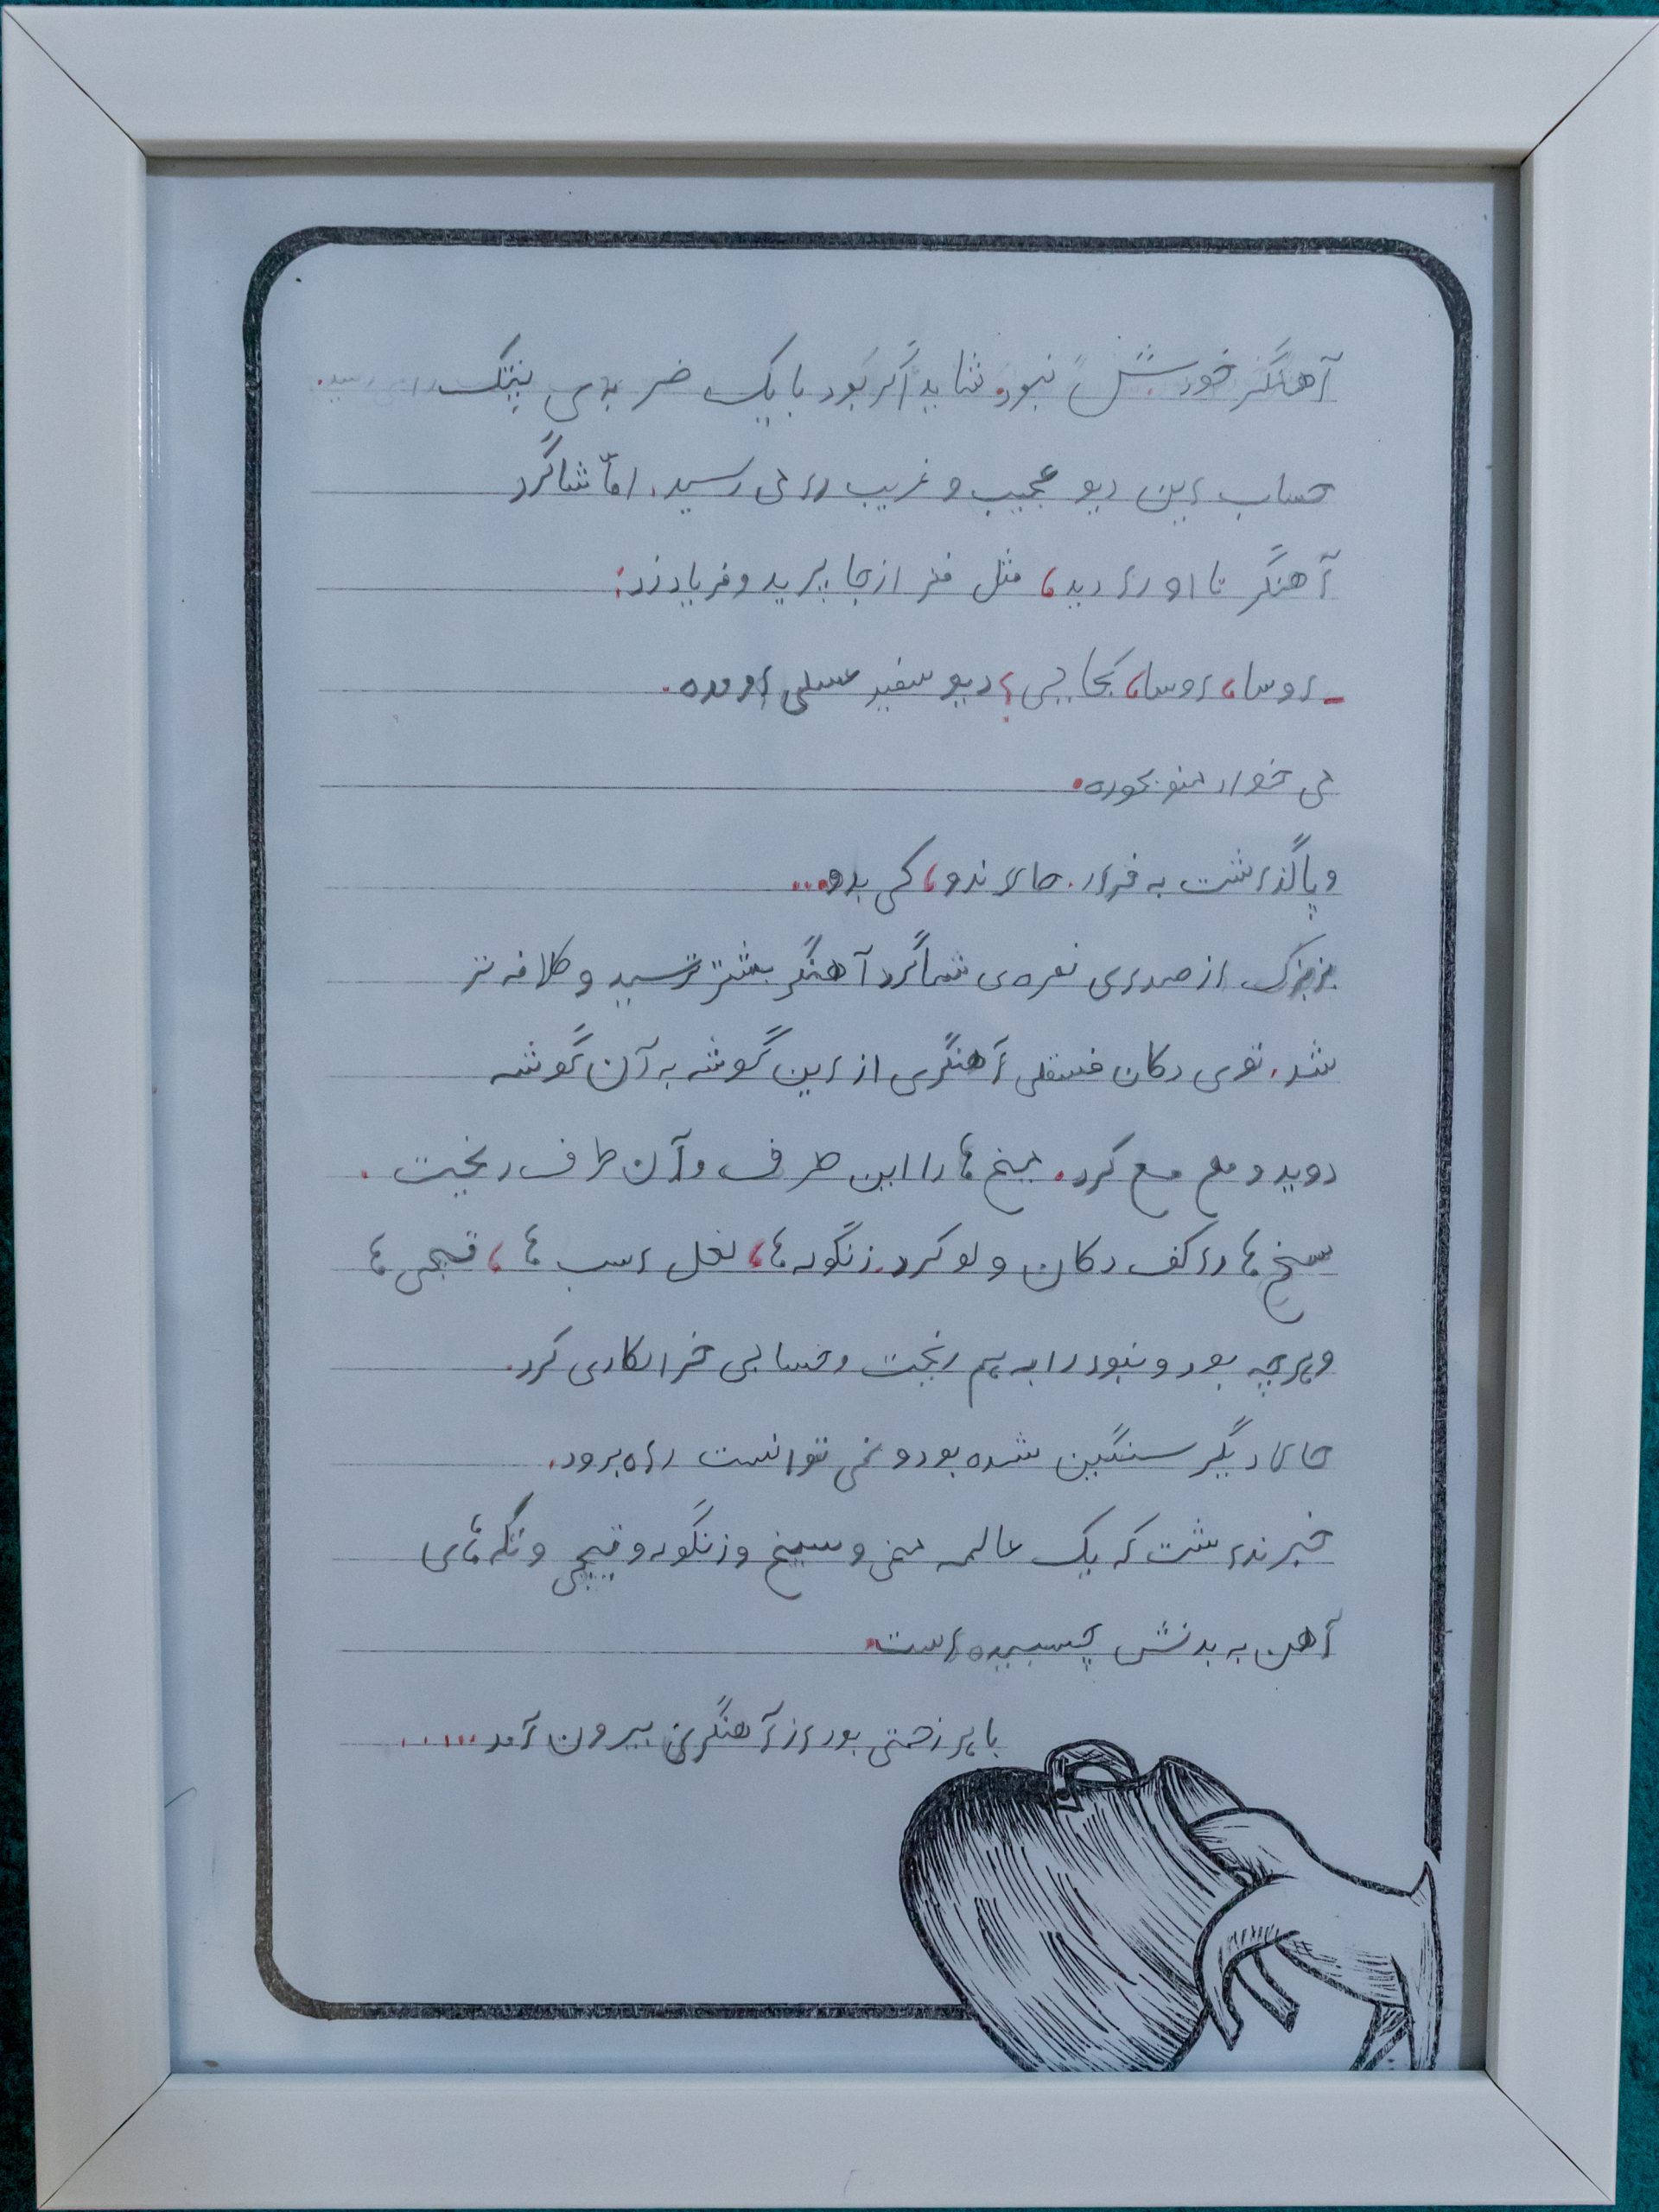 آهنگر خودش نبود. شاید اگر بود با یک ضربه‌ی پتک
حساب این دیو عجیب و غریب را می رسید. امّا شاگرد
آهنگر تا او را دید، مثل فنر از جا پرید و فریاد زد:
- اوسا، اوسا، کجایی؟ دیو سفید عسلی اومده.
می خواد منو بخوره.
و پا گذاشت به فرار. حالا ندو، کی بدو...
بزبزک از صدای نعره‌ی شاگرد آهنگر بیشتر ترسید و کلافه تر
شد. توی دکان فسقلی آهنگری از این گوشه به آن گوشه
دوید و مع مع کرد. میخ ها را این طرف و آن طرف ریخت.
سیخ ها را کف دکان ولو کرد. زنگوله ها، نعل اسب ها، قیچی ها
و هر چه بود و نبود را به هم ریخت و حسابی خرابکاری کرد.
حالا دیگر سنگین شده بود و نمی توانست راه برود.
خبر نداشت که یک عالمه میخ و سیخ و زنگوله و قیچی و تکه های
آهن به بدنش چسبیده است.
با هر زحمتی بود از آهنگری بیرون آمد.....